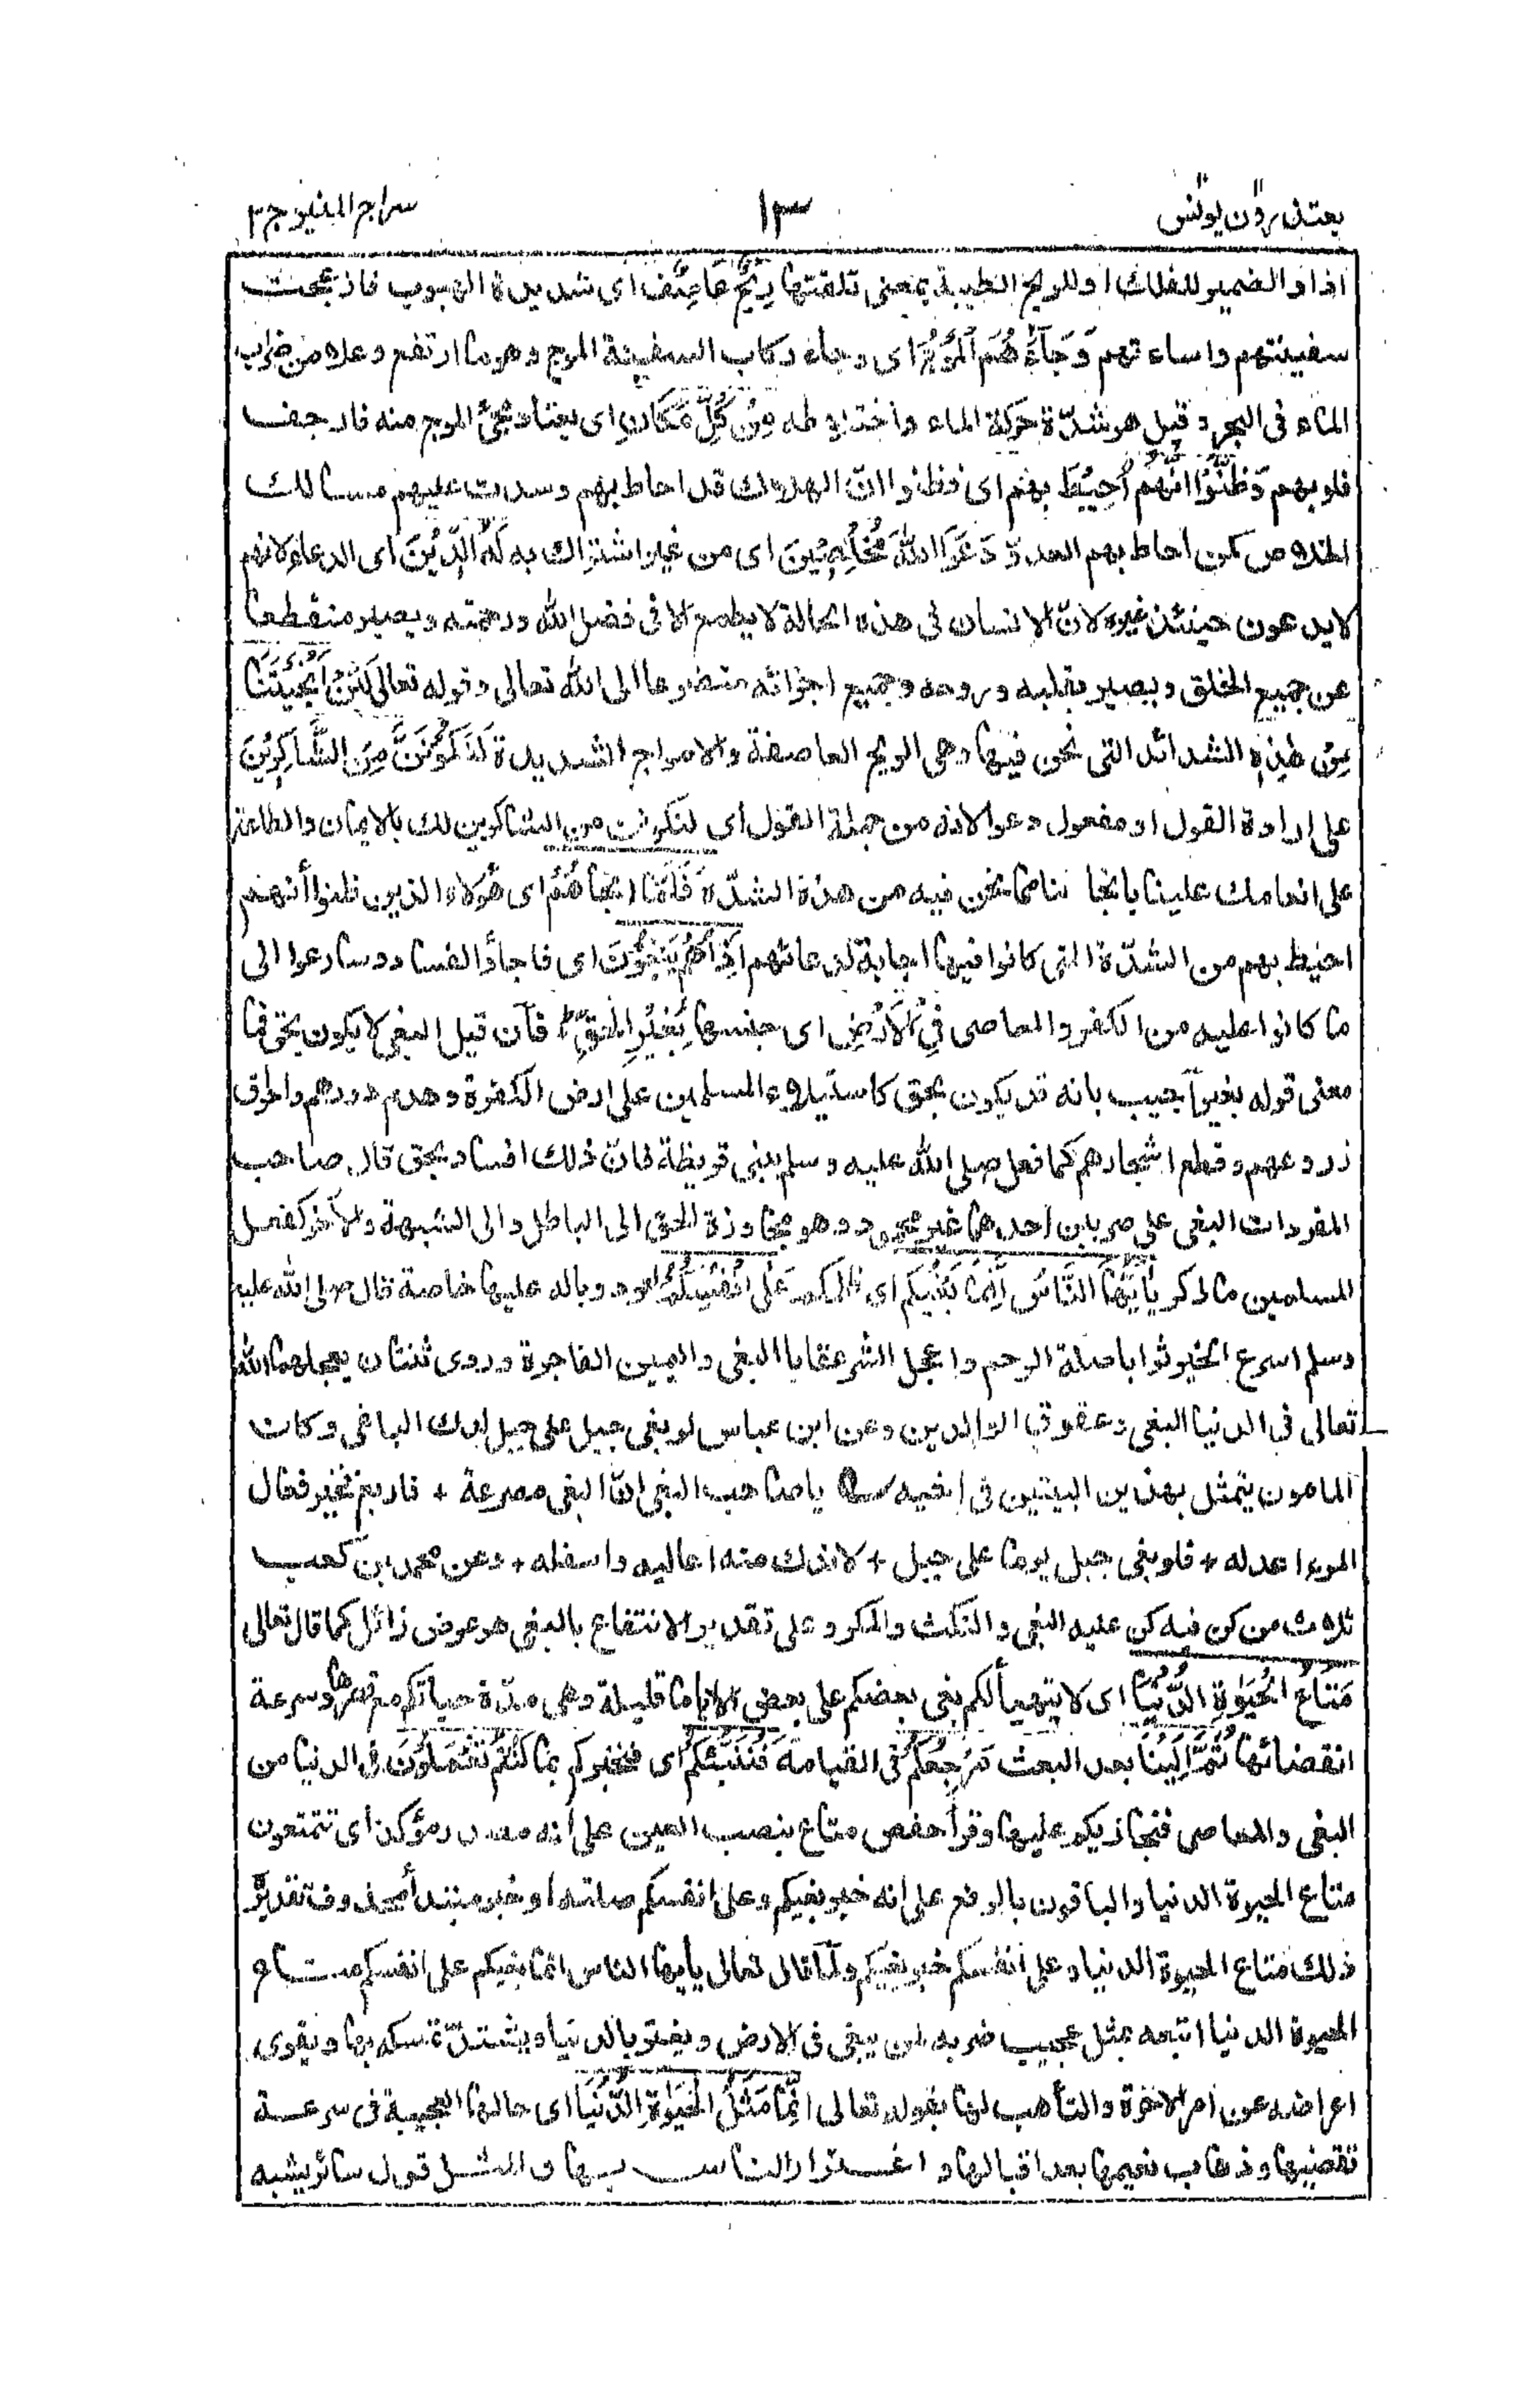 يعتذرون يونس
١٣
سراج المنير ج ٢
اذا والضمير للفلك او للريح الطيبة بمعنى تلقتها رِيْحٌ عَاصِفٌ اى شديدة الهبوب فازعجت
سفينتهم واساءتهم وَّجَآءَهُمُ الْمَوْجُ اى وجاء ركاب السفينة الموج وهو ما ارتفع وعلا من ضراب
الماء فى البحر وقيل هو شدّة حركة الماء واختلاطه مِنْ كُلِّ مَكَانٍ اى يعتاد مجئ الموج منه فارجف
قلوبهم وَّظَنُّوْا اَنَّهُمْ اُحِيْطَ بِهِمْ اى فظنوا انّ الهلاك قد احاط بهم وسدت عليهم مسالك
الخلاص كمن احاط بهم العدوّ دَعَوُا اللهَ مُخْلِصِيْنَ اى من غير اشتراك به لَهُ الدِّيْنَ اى الدعاء لانهم
لا يدعون حينئذ غيره لانّ الانسان فى هذه الحالة لا يطمع الا فى فضل الله ورحمته ويصير منقطعا
عن جميع الخلق ويصير بقلبه وروحه وجميع اجزائه متضرعا الى الله تعالى وقوله تعالى لَئِنْ اَنْجَيْتَنَا
مِنْ هٰذِهٖ الشدائد التى نحن فيها وهى الريح العاصفة والامواج الشديدة لَنَكُوْنَنَّ مِنَ الشَّاكِرِيْنَ
على ارادة القول او مفعول دعوا لانه من جملة القول اى لنكونن من الشاكرين لك بالايمان والطاعة
على انعامك علينا بانجائنا مما نحن فيه من هذه الشدّة فَلَمَّا اَنْجَاهُمْ اى هؤلاء الذين ظنوا أنهم
احيط بهم من الشدّة التى كانوا فيها اجابة لدعائهم اِذَا هُمْ يَبْغُوْنَ اى فاجأوا الفساد وسارعوا الى
ما كانوا عليه من الكفر والمعاصى فِى الْاَرْضِ اى جنسها بِغَيْرِ الْحَقِّ ط فان قيل البغى لا يكون بحق فما
معنى قوله بغير أجيب بانه قد يكون بحق كاستيلاء المسلمين على ارض الكفرة وهدم دورهم واحراق
زروعهم وقطع اشجارهم كما فعل صلى الله عليه وسلم ببنى قريظة فانّ ذلك افساد بحق قال صاحب
المفردات البغى على ضربين احدهما غير محمود وهو مجاوزة الحق الى الباطل والى الشبهة والآخر كفعل
المسلمين ما ذكر يٰاَيُّهَا النَّاسُ اِنَّمَا بَغْيُكُمْ اى ظلمكم عَلٰى اَنْفُسِكُمْ لعود وباله عليها خاصة قال صلى الله عليه
وسلم اسرع الخير ثوابا صلة الرحم واعجل الشر عقابا البغى واليمين الفاجرة وروى ثنتان يعجلهما الله
تعالى فى الدنيا البغى وعقوق الوالدين وعن ابن عباس لو بغى جبل على جبل لدك الباغى وكان
المامون يتمثل بهذين البيتين فى اخيه يا صاحب البغى انّ البغى مصرعة + فاربع فخير فعال
المرء اعدله + فلو بغى جبل يوما على جبل + لاندك منه اعاليه واسفله + وعن محمد بن كعب
ثلاث من كن فيه كن عليه البغى والنكث والمكر وعلى تقدير الانتفاع بالبغى هو عوض زائل كما قال تعالى
مَتَاعُ الْحَيٰوةِ الدُّنْيَا اى لا يتهيأ لكم بغى بعضكم على بعض الا اياما قليلة وهى مدّة حياتكم مع قصرها وسرعة
انقضائها ثُمَّ اِلَيْنَا بعد البعث مَرْجِعُكُمْ فى القيامة فَنُنَبِّئُكُمْ اى فنخبركم بِمَا كُنْتُمْ تَعْمَلُوْنَ فى الدنيا من
البغى والمعاصى فنجازيكم عليها وقرأ حفص متاع بنصب العين على انه مصدر مؤكد اى تتمتعون
متاع الحيوة الدنيا والباقون بالرفع على انه خبر بغيكم وعلى انفسكم صلته او خبر مبتدأ محذوف تقديره
ذلك متاع الحيوة الدنيا وعلى انفسكم خبر بغيكم ولما قال تعالى يأيها الناس انما بغيكم على انفسكم متاع
الحيوة الدنيا اتبعه بمثل عجيب ضربه لمن يبغى فى الارض ويغتر بالدنيا ويشتدّ تمسكه بها ويقوى
اعراضه عن امر الاخرة والتأهب لها بقوله تعالى اِنَّمَا مَثَلُ الْحَيٰوةِ الدُّنْيَا اى حالها العجيبة فى سرعة
تقضيها وذهاب نعيمها بعد اقبالها واغترار الناس بها والمثل قول سائر يشبه